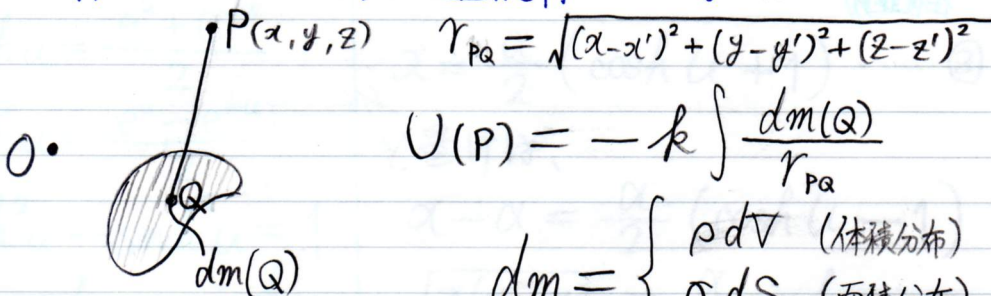 P(x, y, z) r_PQ = √((x-x')² + (y-y')² + (z-z')²)
U(P) = -k ∫ dm(Q) / r_PQ
O
Q
dm(Q)
dm = { ρdV (体積分布)
σdS (面積分布)